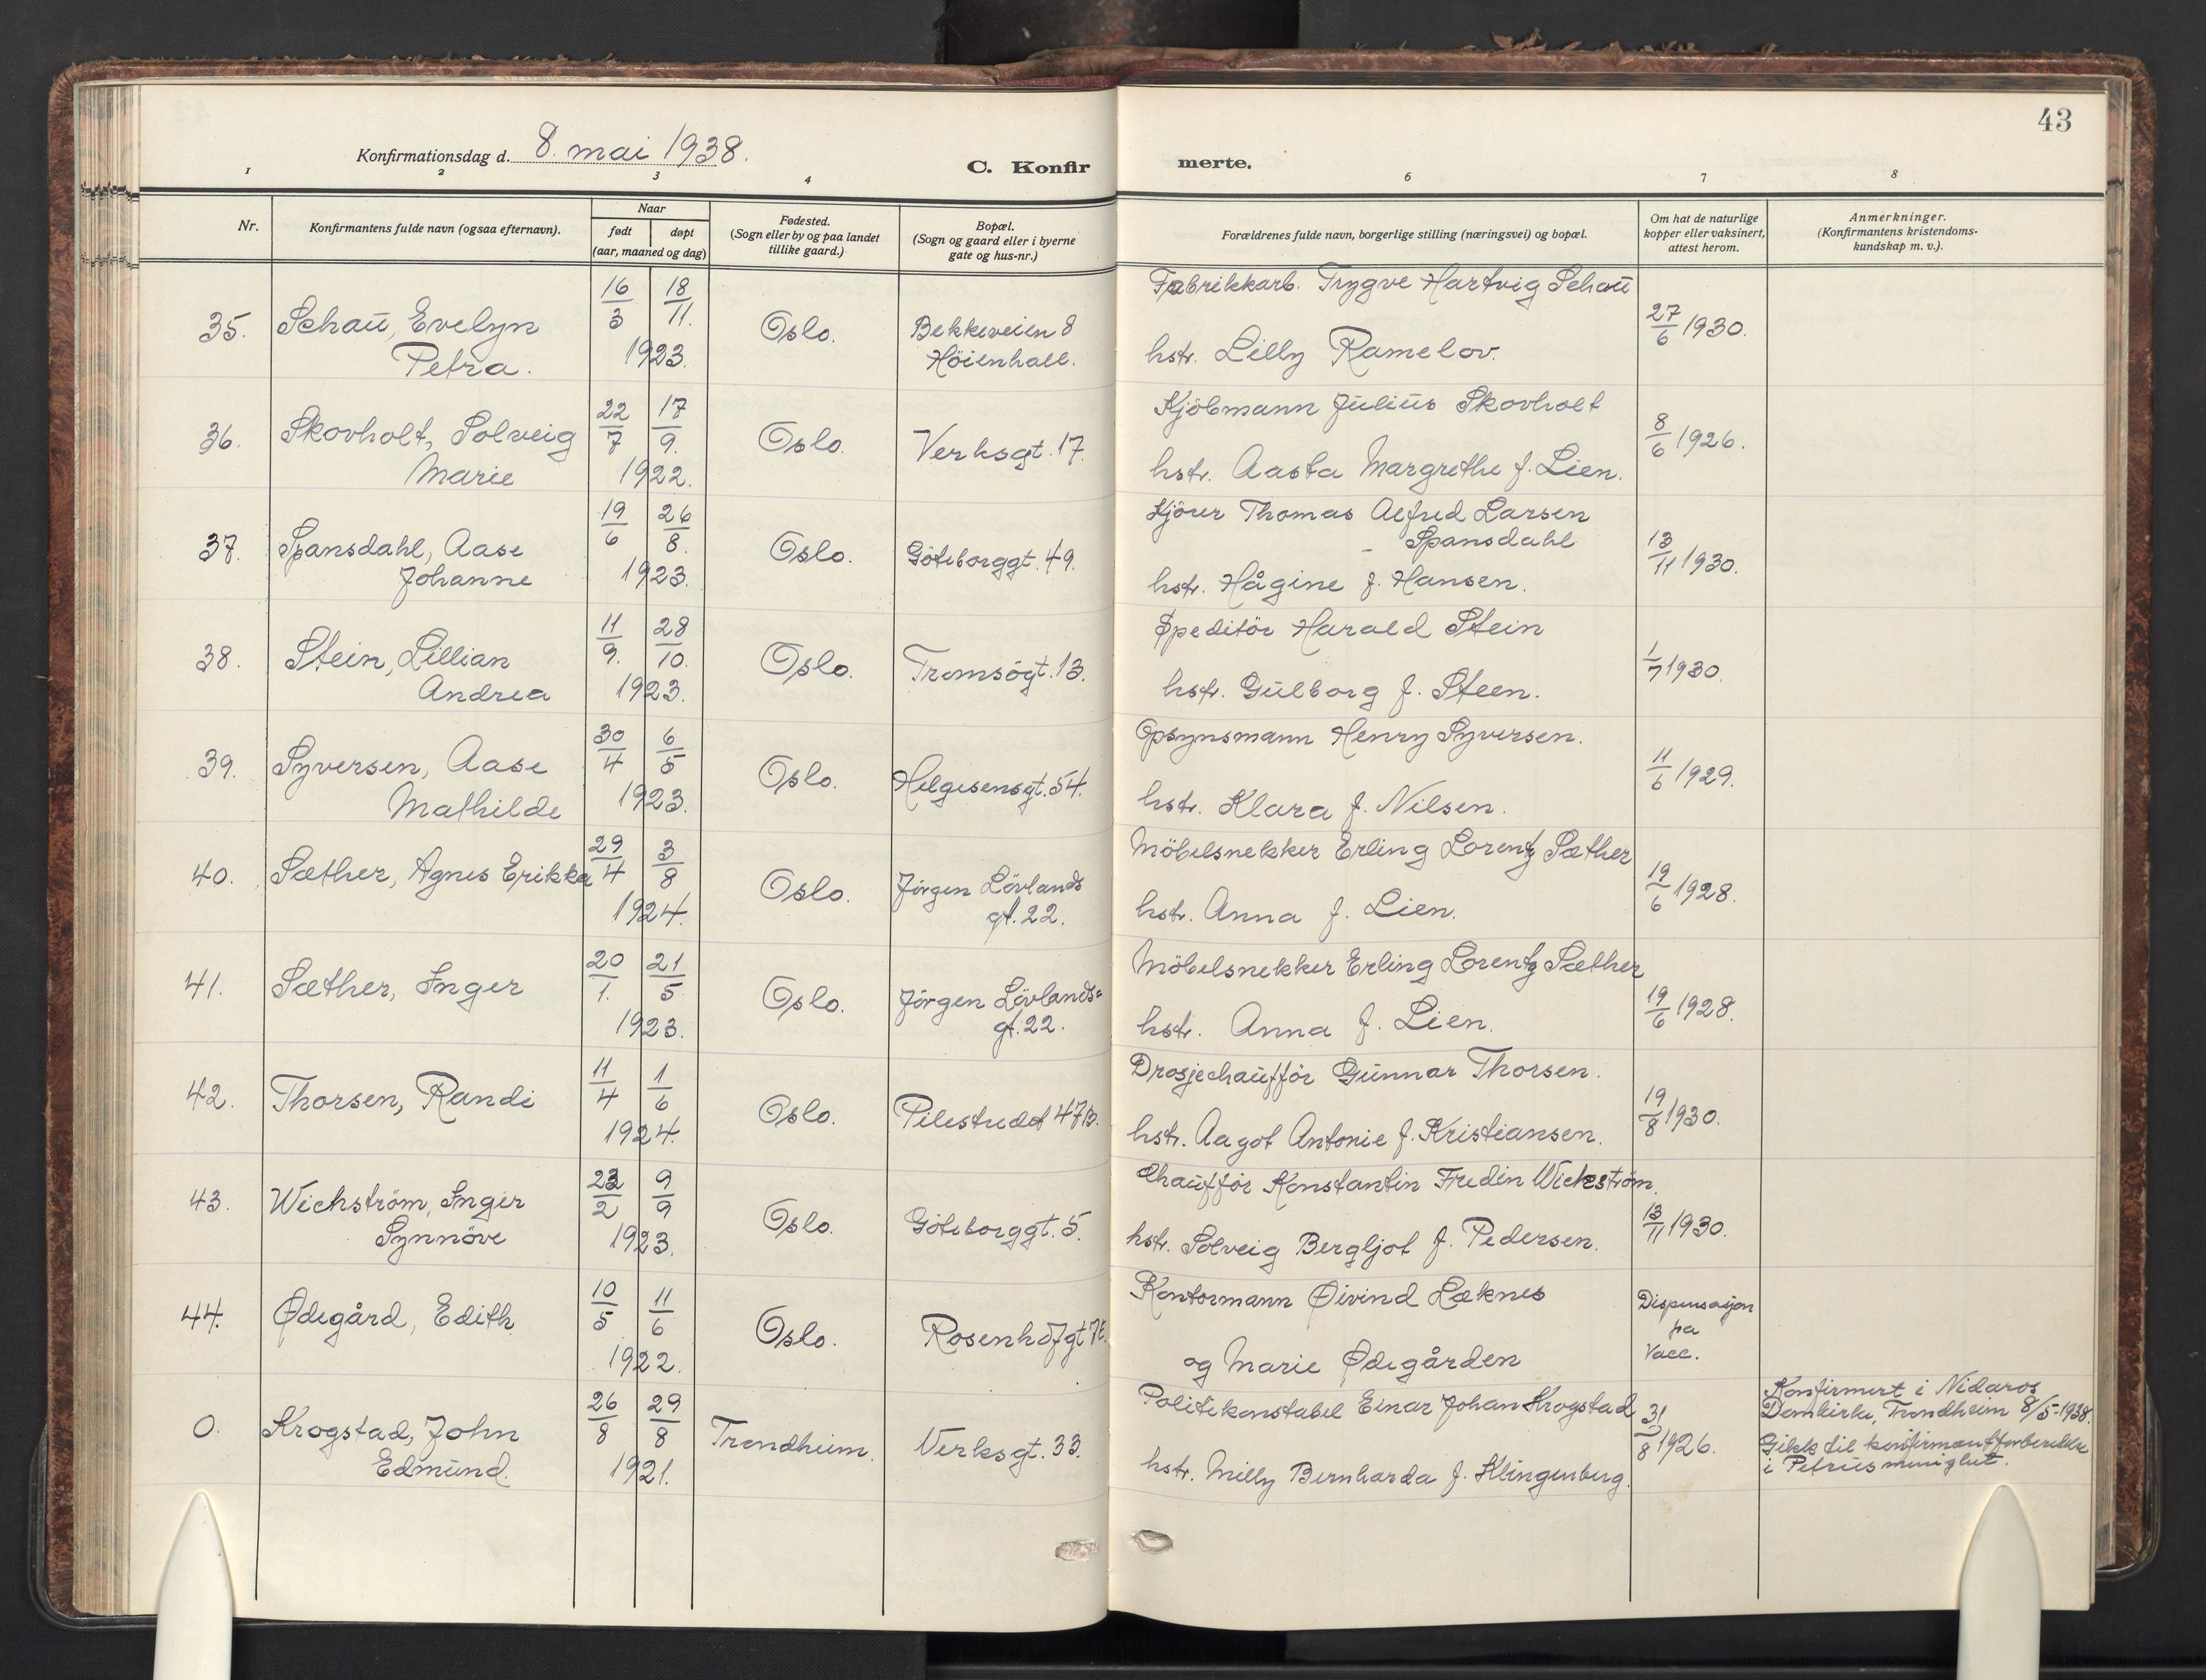 43
Konfirmationsdag d. 8. mai 1938.
C. Konfirmerte.
1 2 3 4 6 7 8
Nr.
Konfirmantens fulde navn (ogsaa efternavn).
Naar
født døpt
(aar, maaned og dag)
Fødested.
(Sogn eller by og paa landet
tillike gaard.)
Bopæl.
(Sogn og gaard eller i byerne
gate og hus-nr.)
Forældrenes fulde navn, borgerlige stilling (næringsvei) og bopæl.
Om hat de naturlige
kopper eller vaksinert,
attest herom.
Anmerkninger.
(Konfirmantens kristendoms-
kundskap m. v.).
35. Schau, Evelyn
Petra.
16/3 18/11.
1923.
Oslo.
Bekkeveien 8
Höienhall.
Fabrikkarb. Trygve Hartvig Schau
hstr. Lilly Ramelov.
27/6 1930.
36. Skovholt, Solveig
Marie
22/7 17/9.
1922.
Oslo.
Verksgt. 17.
Kjöbmann Julius Skovholt
hstr. Aasta Margrethe f. Lien.
8/6 1926.
37. Spansdahl, Aase
Johanne
19/6 26/8.
1923.
Oslo.
Göteborggt. 49.
Kjörer Thomas Alfred Larsen
- Spansdahl
hstr. Hågine f. Hansen.
13/11 1930.
38. Stein, Lillian
Andrea
11/9. 28/10.
1923.
Oslo.
Tromsögt. 13.
Speditör Harald Stein
hstr. Gulborg f. Steen.
1/7 1930.
39. Syversen, Aase
Mathilde
30/4 6/5
1923.
Oslo.
Helgesensgt. 54.
Opsynsmann Henry Syversen.
hstr. Klara f. Nilsen.
11/6 1929.
40. Sæther, Agnes Erikka
29/4 3/8
1924.
Oslo.
Jörgen Lövlands
gt. 22.
Möbelsnekker Erling Lorentz Sæther
hstr. Anna f. Lien.
19/6 1928.
41. Sæther, Inger
20/1. 21/5
1923.
Oslo.
Jörgen Lövlands=
gt. 22.
Möbelsnekker Erling Lorentz Sæther
hstr. Anna f. Lien.
19/6 1928.
42. Thorsen, Randi
11/4 1/6
1924.
Oslo.
Pilestredet 47B.
Drosjechaufför Gunnar Thorsen.
hstr. Aagot Antonie f. Kristiansen.
19/8 1930.
43. Wickström, Inger
Synnöve
2/2 9/9
1923.
Oslo.
Göteborggt. 5.
Chaufför Konstantin Fredin Wickström.
hstr. Solveig Bergljot f. Pedersen.
13/11 1930.
44. Ødegård, Edith
10/5 11/6
1922.
Oslo.
Rosenhofgt
Kontormann Øivind Læknes
og Marie Ødegården
Dispensasjon
pa
Vacc.
0. Krogstad, John
Edmund.
26/8 29/8
1921.
Trondheim.
Verksgt. 33.
Politikonstabel Einar Johan Krogstad
hstr. Milly Bernharda f. Klingenberg.
31/8 1926.
Konfirmert i Nidaros
Domkirke, Trondheim 8/5-1938.
Gikk til konfirmantforberedelse
i Petrus menighet.